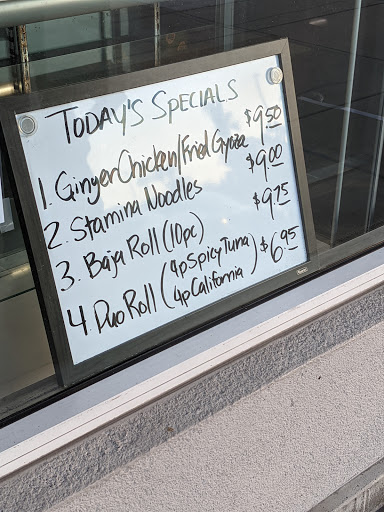 TODAY'S SPECIALS
1. Ginger Chicken/Fried Gyoza $9.50
2. Stamina Noodles $9.00
3. Baja Roll (10pc) $9.75
4. Duo Roll (4p Spicy Tuna
4p California) $6.95